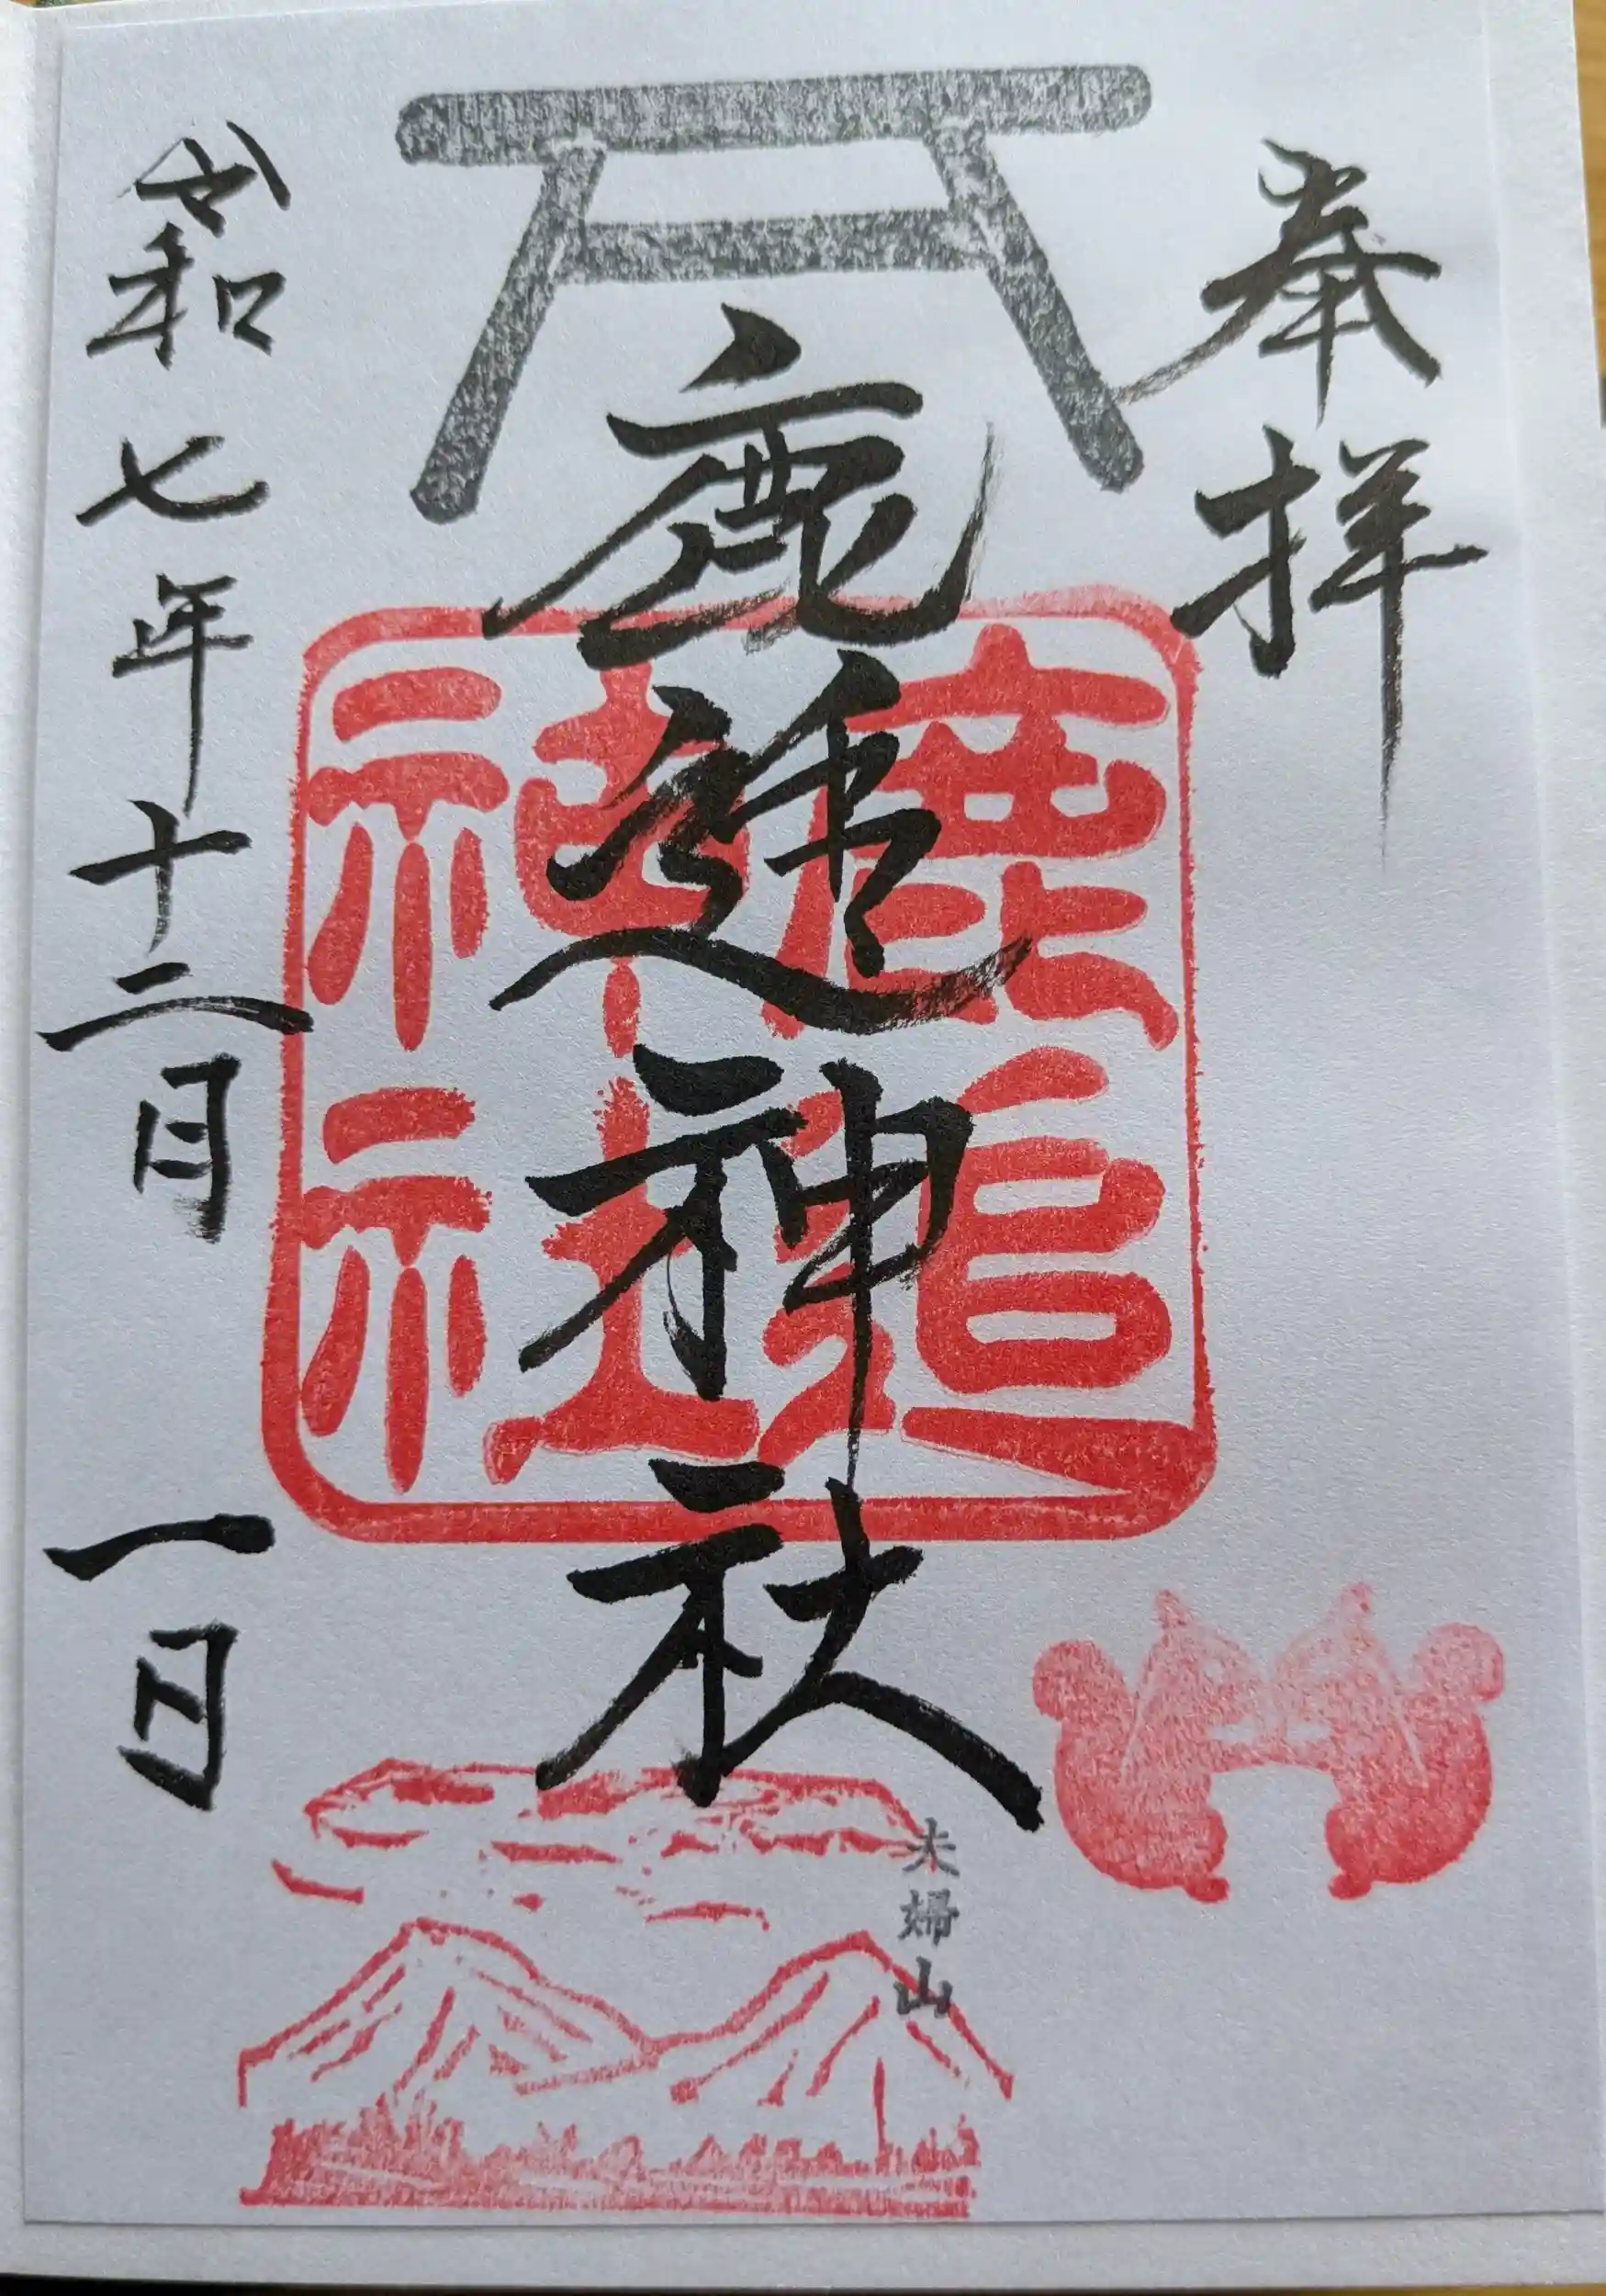 奉拝
鹿追神社
鹿追
神社
夫婦山
令和七年十二月一日